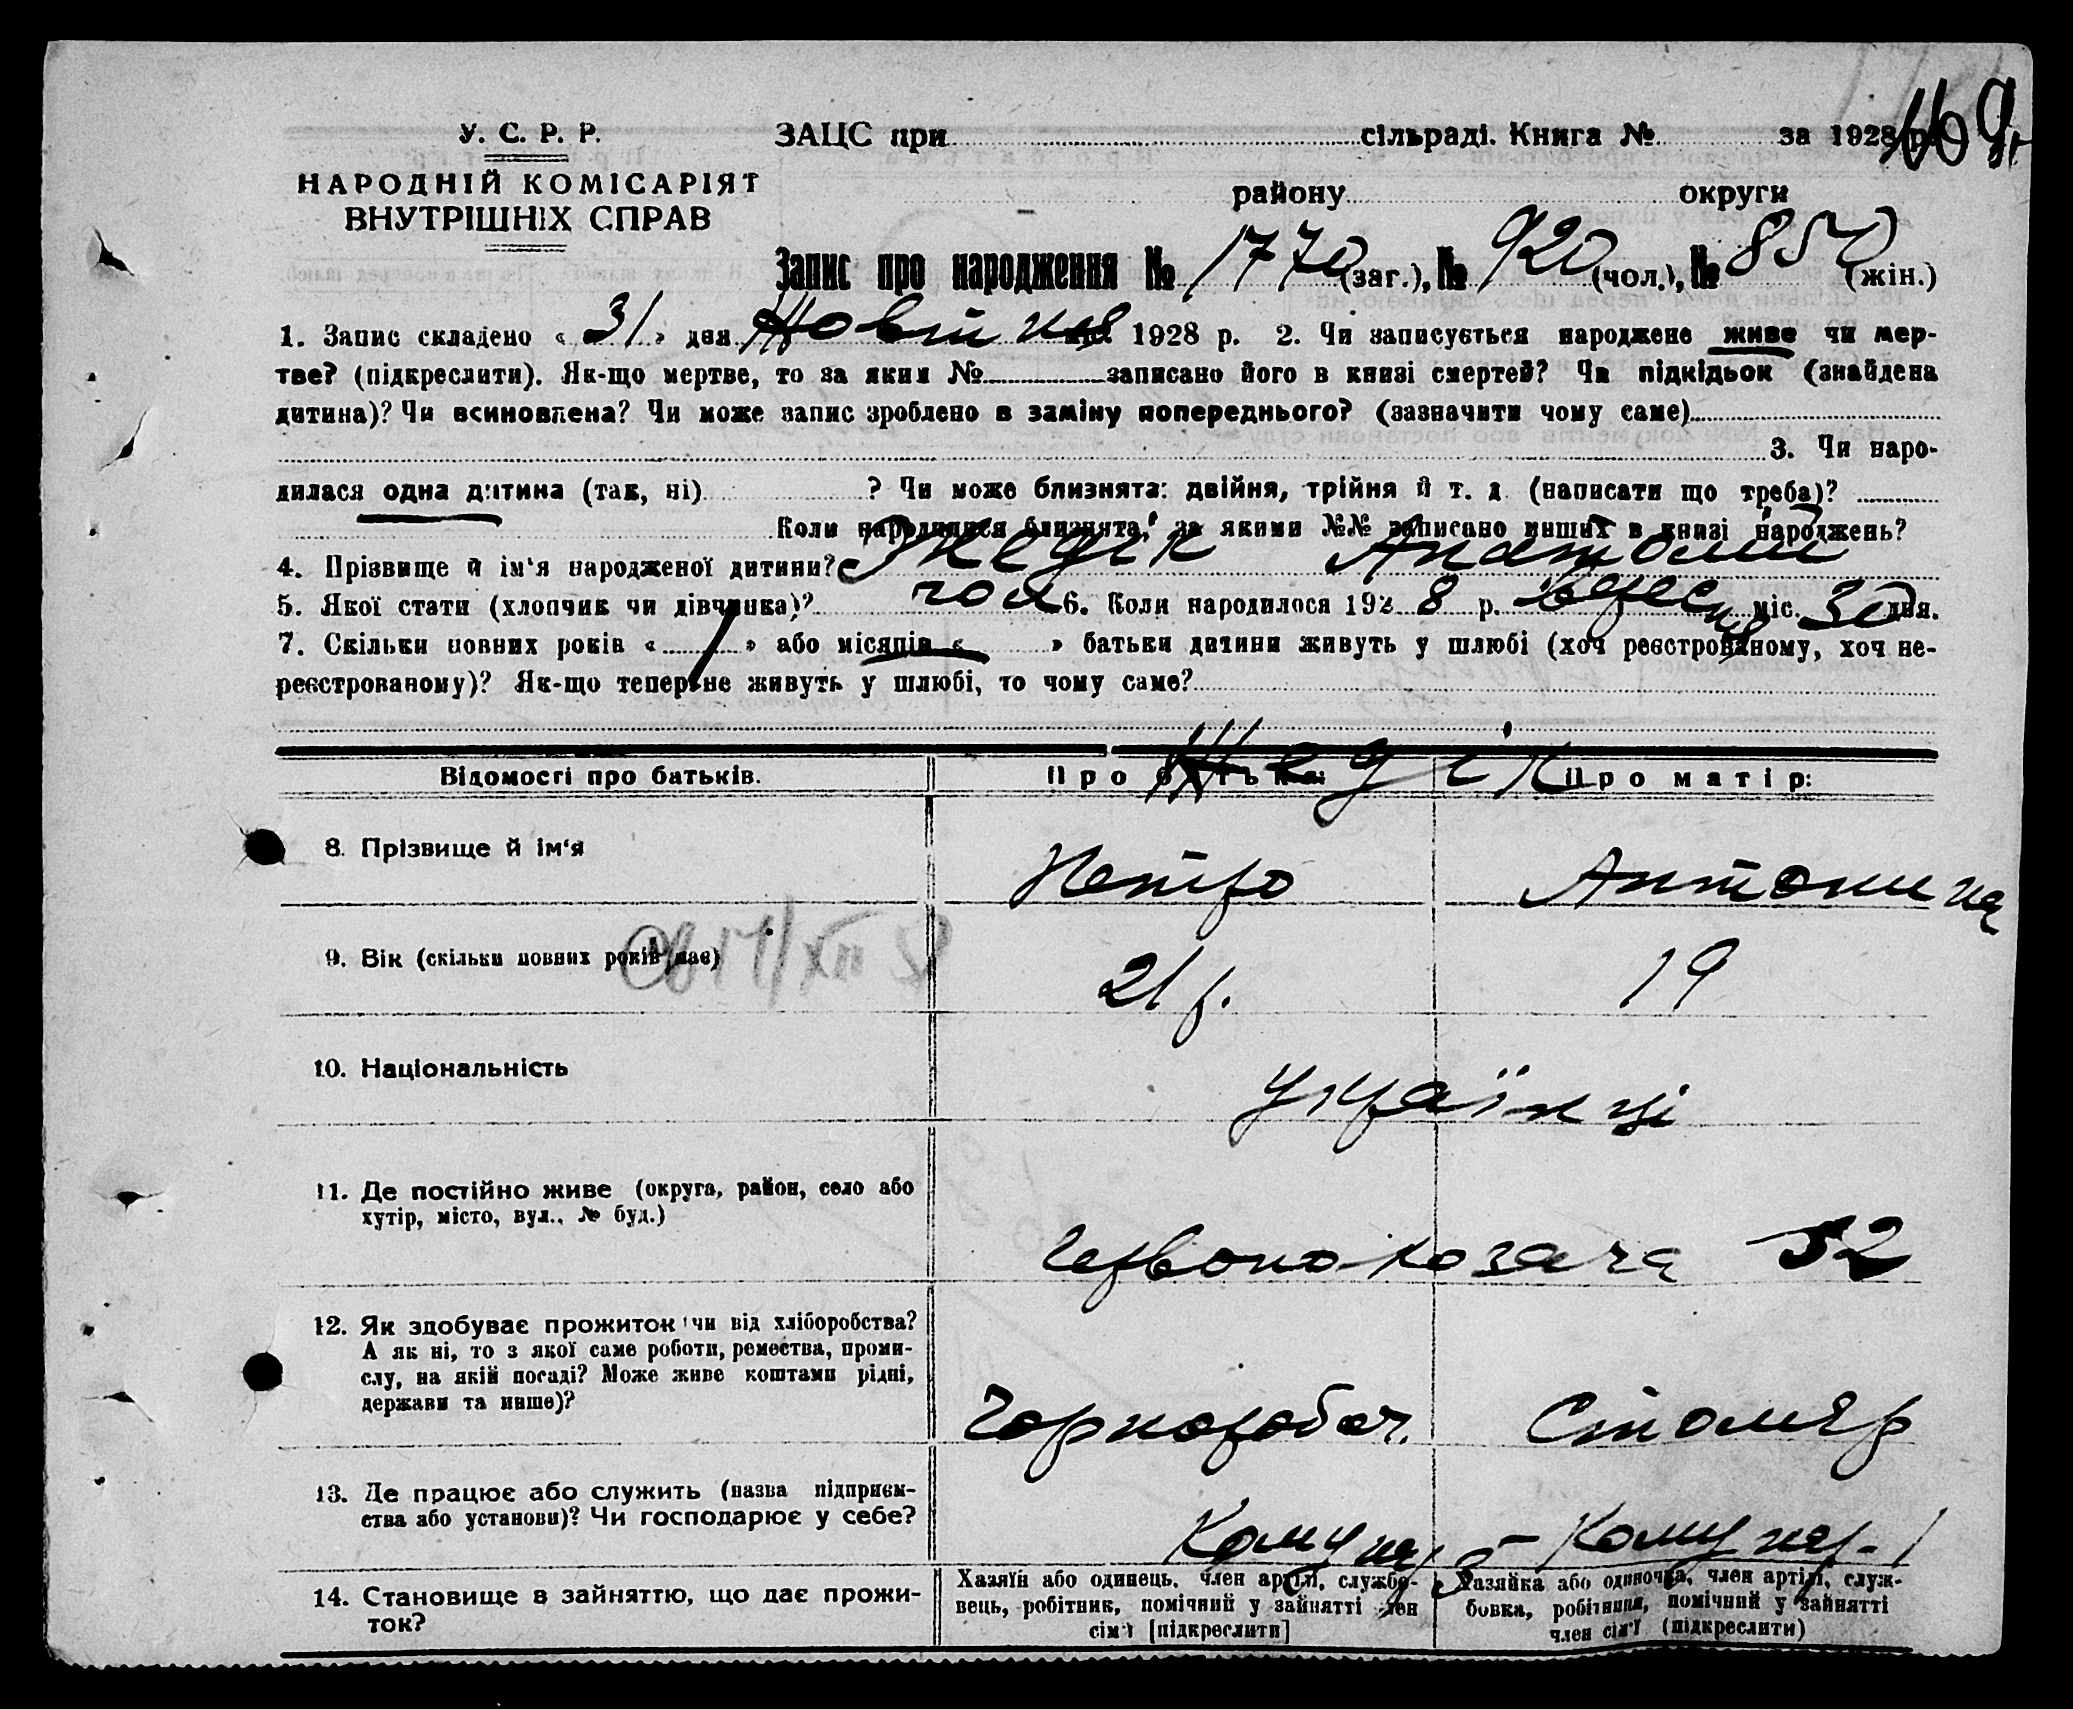 169
У. С. Р. Р.
НАРОДНІЙ КОМІСАРІЯТ
ВНУТРІШНІХ СПРАВ
ЗАЦС при сільраді. Книга № за 1928 р.
району округи
Запис про народження № 1770 (заг.), № 920 (чол.), № 850 (жін.)
1. Запис складено « 31 » дня Жовтня 1928 р. 2. Чи записується народжене живе чи мер-
тве? (підкреслити). Як-що мертве, то за яким № записано його в книзі смертей? Чи підкідьок (знайдена
дитина)? Чи всиновлена? Чи може запис зроблено в заміну попереднього? (зазначити чому саме)
3. Чи наро-
дилася одна дитина (так, ні) ? Чи може близнята: двійня, трійня й т. д (написати що треба)?
Коли народилися близнята, за якими №№ записано инших в книзі народжень?
4. Прізвище й ім'я народженої дитини? Жедік Анатолій
5. Якої стати (хлопчик чи дівчинка)? чол 6. Коли народилося 192 8 р. Верес міс. 30 дня.
7. Скільки повних років « 1 » або місяців « » батьки дитини живуть у шлюбі (хоч реєстрованому, хоч не-
реєстрованому)? Як-що тепер не живуть у шлюбі, то чому саме?
Відомості про батьків. Про батька: Про матір:
Жедік
8. Прізвище й ім'я Петро Антонина
9. Вік (скільки повних років має) 21 р. 19
10. Національність Українці
11. Де постійно живе (округа, район, село або
хутір, місто, вул., № буд.)
Червоно-козача 52
12. Як здобуває прожиток чи від хліборобства?
А як ні, то з якої саме роботи, ремества, проми-
слу, на якій посаді? Може живе коштами рідні,
держави та инше)?
Чорнороботч. Столяр
13. Де працює або служить (назва підприєм-
ства або установи)? Чи господарює у себе?
14. Становище в зайняттю, що дає прожи-
ток?
Хазяїн або одинець, член артілі, службо-
вець, робітник, помічний у зайнятті член
сім'ї [підкреслити]
Хазяйка або одиночка, член артілі, служ-
бовка, робітниця, помічний у зайнятті
член сім'ї (підкреслити)